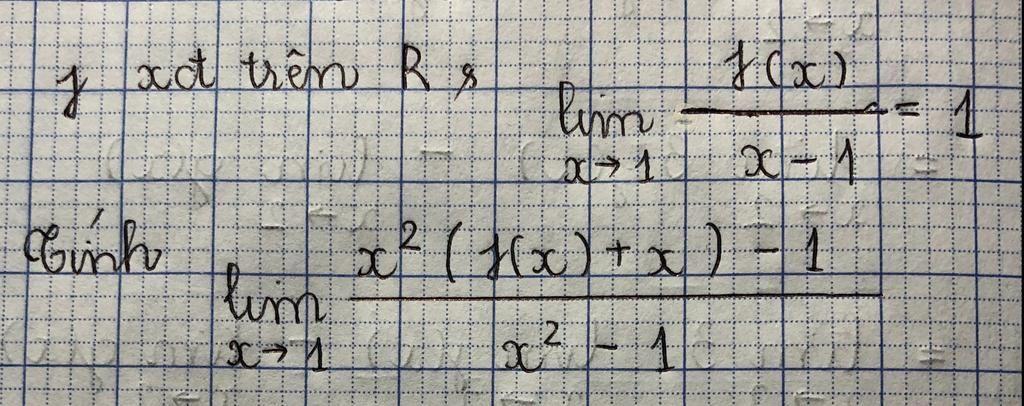 f xđ trên R,
lim x→1 f(x) / x - 1 = 1
Tính lim x→1 x² (f(x) + x) - 1 / x² - 1